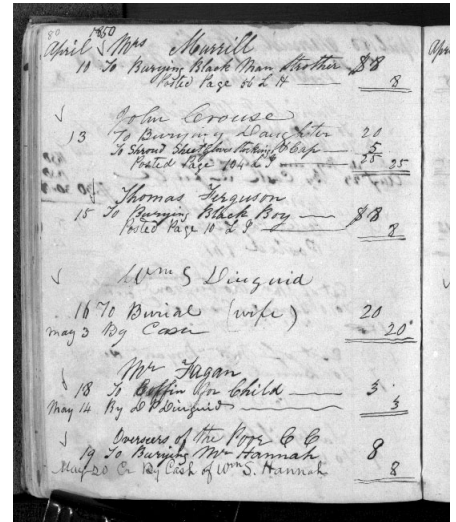 80
1850
April Mrs Murrill
10 To Burying Black Man Strother $8
Posted Page 56 L H 8
John Crouse
13 To Burying Daughter 20
To Shroud Sheet Glove Stocking & Cap 5
Posted Page 104 L I 25 25
Thomas Ferguson
15 To Burying Black Boy $8
Posted Page 10 L I 8
Wm S Diuguid
16 To Burial (wife) 20
May 3 By Cash 20
Mr Fagan
18 To Coffin for Child 3
May 14 By D P Diuguid 3
Overseers of the Poor C C
19 To Burying Mr Hannah 8
May 20 Cr By Cash of Wm S. Hannah 8
Apr